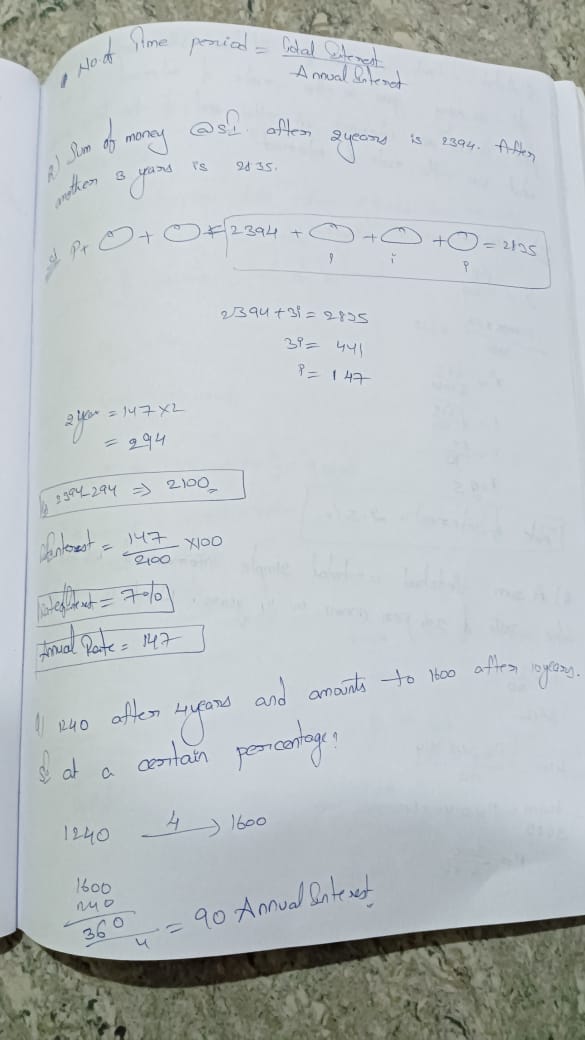 No. of Time period = Total Interest
Annual Interest
Q) Sum of money @ SI. after 2 years is 2394. After
another 3 years is 2835.
P+ + 2394 + + + = 2835
i i i
2394 + 3i = 2835
3i = 441
i = 147
2 year = 147 × 2
= 294
2394 - 294 ⇒ 2100
Interest = 147 ×100
2100
Rate of Interest = 7%
Annual Rate = 147
Q) 1240 after 4 years and amounts to 1600 after 10 years.
at a certain percentage?
1240 4 → 1600
1600
240
360 = 90 Annual Interest
4